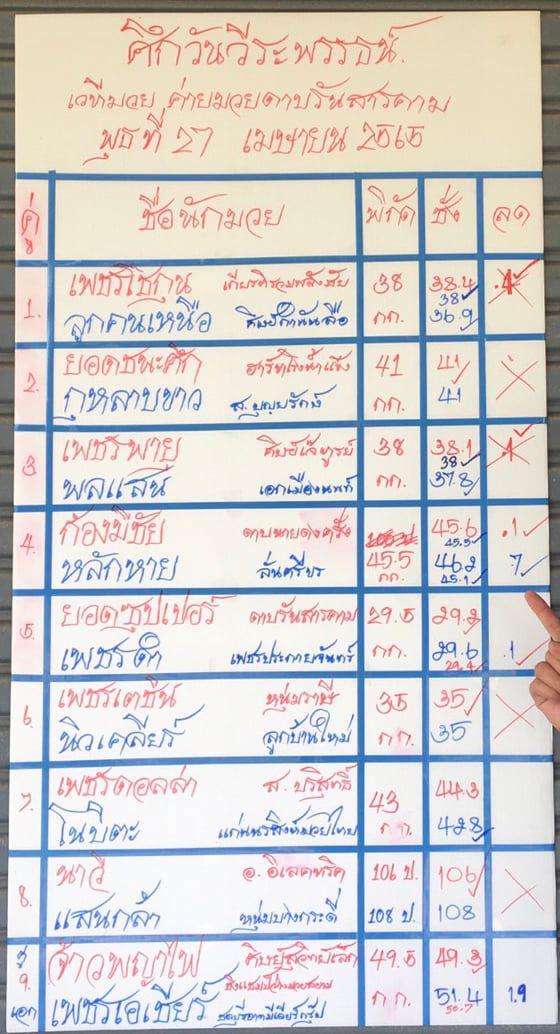 ศึกวันวีระพรรธน์.
เวทีมวย ค่ายมวยดาบรันสารคาม
พุธที่ 27 เมษายน 2565
คู่ ชื่อนักมวย พิกัด ชั่ง ลด
1. เพชรโชกุน 38 38.4 .4
38
ลูกคนเหนือ กก. 36.9
2. ยอดชนะศึก 41 41
กุหลาบขาว ส.บุญยรักษ์ กก. 41
3 เพชรพายุ 38 38.1 .1
38
พลแสน เอกเมืองนนท์ กก. 37.8
4. ก้องมีชัย 45.6 .1
45.5
หลักหาย ลั่นศรียร 45.5 กก. 46.2 .7
45.1
5. ยอดซุปเปอร์ ดาบรันสารคาม 29.5 29.2
เพชรดำ เพชรประกายจันทร์ กก. 29.6 .1
29.4
6. เพชรเตชิน หนุ่มราษี 35 35
นิวเคลียร์ ลูกบ้านใหม่ กก. 35
7. เพชรดอลล่า ส.บริสุทธิ์ 43 44.3
โนบิตะ แก่นนรสิงห์มวยไทย กก. 42.8
8. นาวี อ.อิเลคทริค 106 ป. 106
แสนกล้า หนุ่มบางกระดี่ 108 ป. 108
คู่ 9. เอก จ้าวพญาไฟ 49.5 49.3
เพชรเอเชียร์ กก. 51.4 1.9
50.7